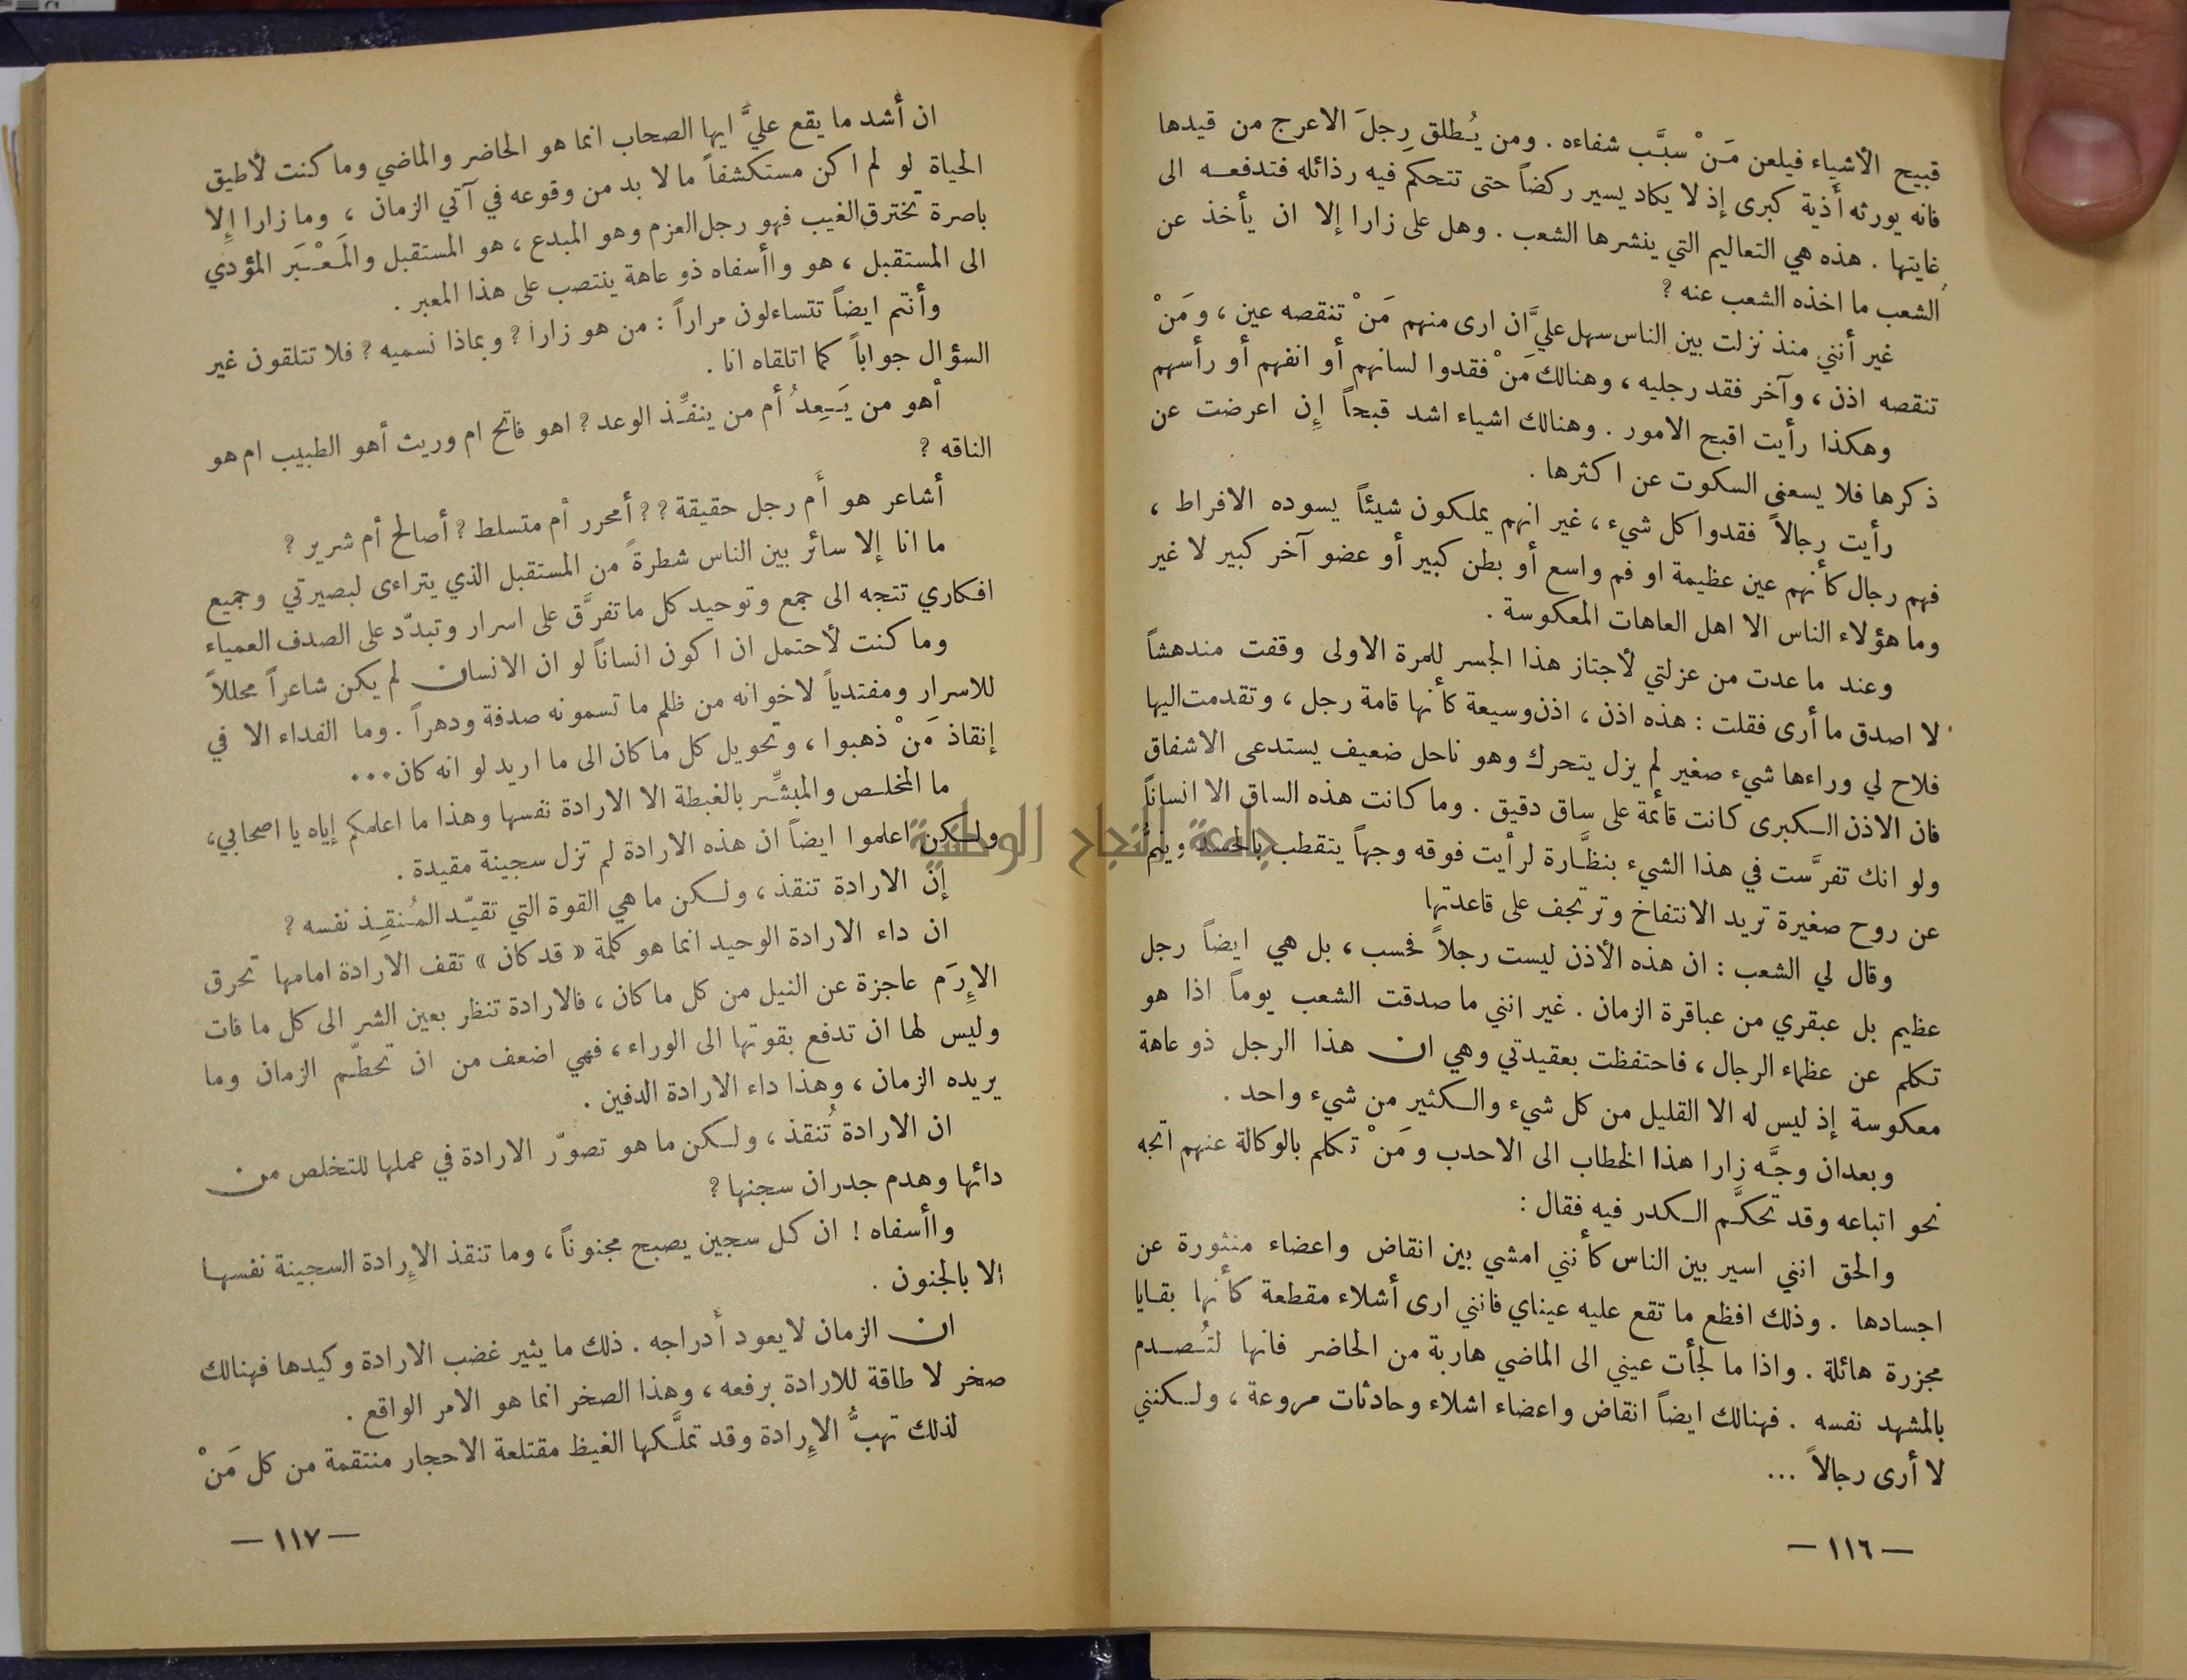 قبيح الأشياء فيلعن مَنْ سبَّب شفاءه . ومن يُطلق رِجلَ الاعرج من قيدها
فانه يورثه أذية كبرى إذ لا يكاد يسير ركضاً حتى تتحكم فيه رذائله فتدفعه الى
غايتها . هذه هي التعاليم التي ينشرها الشعب . وهل على زارا إلا ان يأخذ عن
الشعب ما اخذه الشعب عنه ؟
غير أنني منذ نزلت بين الناس سهل عليَّ ان ارى منهم مَنْ تنقصه عين ، ومَنْ
تنقصه اذن ، وآخر فقد رجليه ، وهنالك مَنْ فقدوا لسانهم أو انفهم أو رأسهم
وهكذا رأيت اقبح الامور . وهنالك اشياء اشد قبحاً إن اعرضت عن
ذكرها فلا يسعني السكوت عن اكثرها .
رأيت رجالاً فقدوا كل شيء ، غير انهم يملكون شيئاً يسوده الافراط ،
فهم رجال كأنهم عين عظيمة او فم واسع أو بطن كبير أو عضو آخر كبير لا غير
وما هؤلاء الناس الا اهل العاهات المعكوسة .
وعند ما عدت من عزلتي لأجتاز هذا الجسر للمرة الاولى وقفت مندهشاً
لا اصدق ما أرى فقلت : هذه اذن ، اذن وسيعة كأنها قامة رجل ، وتقدمت اليها
فلاح لي وراءها شيء صغير لم يزل يتحرك وهو ناحل ضعيف يستدعى الاشفاق
فان الاذن الكبرى كانت قائمة على ساق دقيق . وما كانت هذه الساق الا انساناً
ولو انك تفرَّست في هذا الشيء بنظَّارة لرأيت فوقه وجهاً يتقطب بالحسد وينمُّ
عن روح صغيرة تريد الانتفاخ وترتجف على قاعدتها
وقال لي الشعب : ان هذه الأذن ليست رجلاً فحسب ، بل هي ايضاً رجل
عظيم بل عبقري من عباقرة الزمان . غير انني ما صدقت الشعب يوماً اذا هو
تكلم عن عظماء الرجال ، فاحتفظت بعقيدتي وهي ان هذا الرجل ذو عاهة
معكوسة إذ ليس له الا القليل من كل شيء والكثير من شيء واحد .
وبعدان وجَّه زارا هذا الخطاب الى الاحدب ومَنْ تكلم بالوكالة عنهم اتجه
نحو اتباعه وقد تحكَّم الكدر فيه فقال :
والحق انني اسير بين الناس كأنني امشي بين انقاض واعضاء منثورة عن
اجسادها . وذلك افظع ما تقع عليه عيناي فانني ارى أشلاء مقطعة كأنها بقايا
مجزرة هائلة . واذا ما لجأت عيني الى الماضي هاربة من الحاضر فانها لتُصدم
بالمشهد نفسه . فهنالك ايضاً انقاض واعضاء اشلاء وحادثات مروعة ، ولكنني
لا أرى رجالاً ...
— ١١٦ —
ان أشد ما يقع عليَّ ايها الصحاب انما هو الحاضر والماضي وما كنت لأطيق
الحياة لو لم اكن مستكشفاً ما لا بد من وقوعه في آتي الزمان ، وما زارا إلا
باصرة تخترق الغيب فهو رجل العزم وهو المبدع ، هو المستقبل والمَعْبَر المؤدي
الى المستقبل ، هو واأسفاه ذو عاهة ينتصب على هذا المعبر .
وأنتم ايضاً تتساءلون مراراً : من هو زارا ؟ وبماذا نسميه ؟ فلا تتلقون غير
السؤال جواباً كما اتلقاه انا .
أهو من يَعِدُ أم من ينفِّذ الوعد ؟ اهو فاتح ام وريث أهو الطبيب ام هو
الناقه ؟
أشاعر هو أم رجل حقيقة ؟ ؟ أمحرر أم متسلط ؟ أصالح أم شرير ؟
ما انا إلا سائر بين الناس شطرةً من المستقبل الذي يتراءى لبصيرتي وجميع
افكاري تتجه الى جمع وتوحيد كل ما تفرَّق على اسرار وتبدّد على الصدف العمياء
وما كنت لأحتمل ان اكون انساناً لو ان الانسان لم يكن شاعراً محللاً
للاسرار ومفتدياً لاخوانه من ظلم ما تسمونه صدفة ودهراً . وما الفداء الا في
إنقاذ مَنْ ذهبوا ، وتحويل كل ما كان الى ما اريد لو انه كان ...
ما المخلص والمبشّر بالغبطة الا الارادة نفسها وهذا ما اعلمكم إياه يا اصحابي،
ولكن اعلموا ايضاً ان هذه الارادة لم تزل سجينة مقيدة .
إنَّ الارادة تنقذ ، ولكن ما هي القوة التي تقيّد المُنقِذ نفسه ؟
ان داء الارادة الوحيد انما هو كلمة « قد كان » تقف الارادة امامها تحرق
الإِرَم عاجزة عن النيل من كل ما كان ، فالارادة تنظر بعين الشر الى كل ما فات
وليس لها ان تدفع بقوتها الى الوراء ، فهي اضعف من ان تحطّم الزمان وما
يريده الزمان ، وهذا داء الارادة الدفين .
ان الارادة تُنقذ ، ولكن ما هو تصوّر الارادة في عملها للتخلص من
دائها وهدم جدران سجنها ؟
واأسفاه ! ان كل سجين يصبح مجنوناً ، وما تنقذ الإرادة السجينة نفسها
الا بالجنون .
ان الزمان لا يعود أدراجه . ذلك ما يثير غضب الارادة وكيدها فهنالك
صخر لا طاقة للارادة برفعه ، وهذا الصخر انما هو الامر الواقع .
لذلك تهبُّ الإرادة وقد تملَّكها الغيظ مقتلعة الاحجار منتقمة من كل مَنْ
— ١١٧ —
جامعة النجاح الوطنية